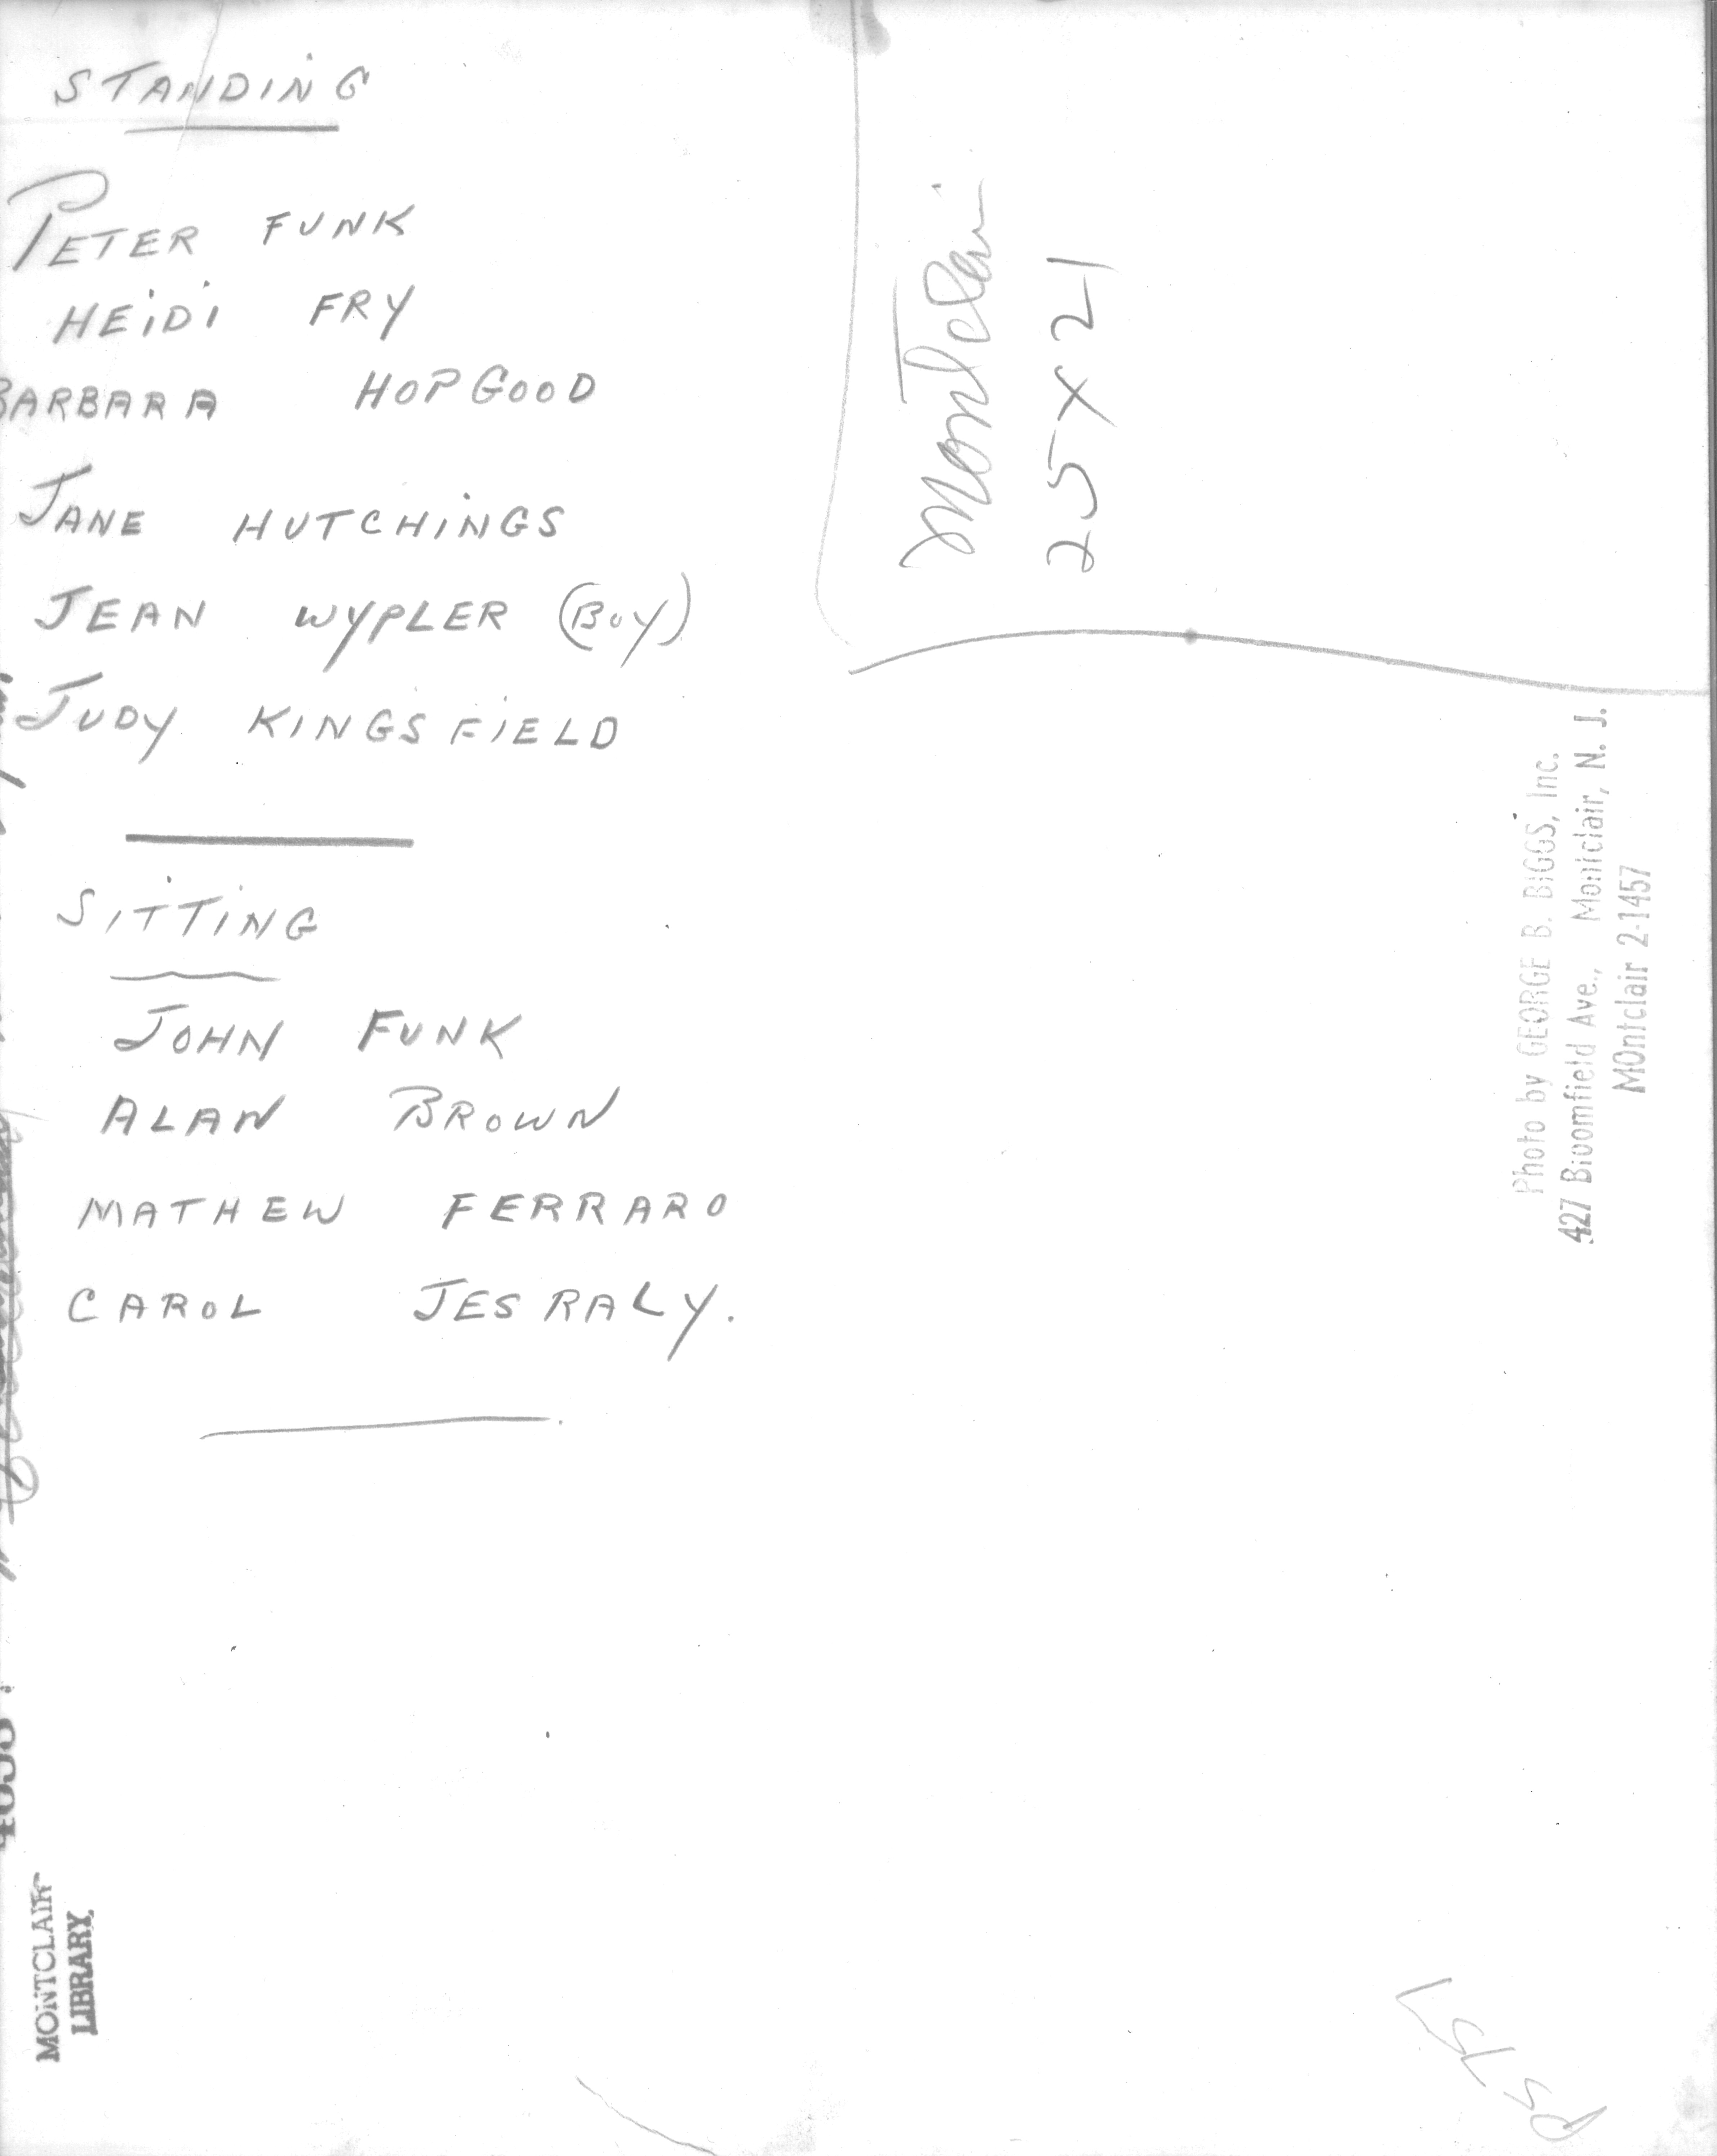 STANDING
PETER FUNK
HEIDI FRY
BARBARA HOPGOOD
JANE HUTCHINGS
JEAN WYPLER (BOY)
JUDY KINGSFIELD
SITTING
JOHN FUNK
ALAN BROWN
MATHEW FERRARO
CAROL JESRALY.
Montclair
25 x 21
Photo by GEORGE B. BIGGS, Inc.
427 Bloomfield Ave., Montclair, N. J.
MOntclair 2-1457
MONTCLAIR
LIBRARY